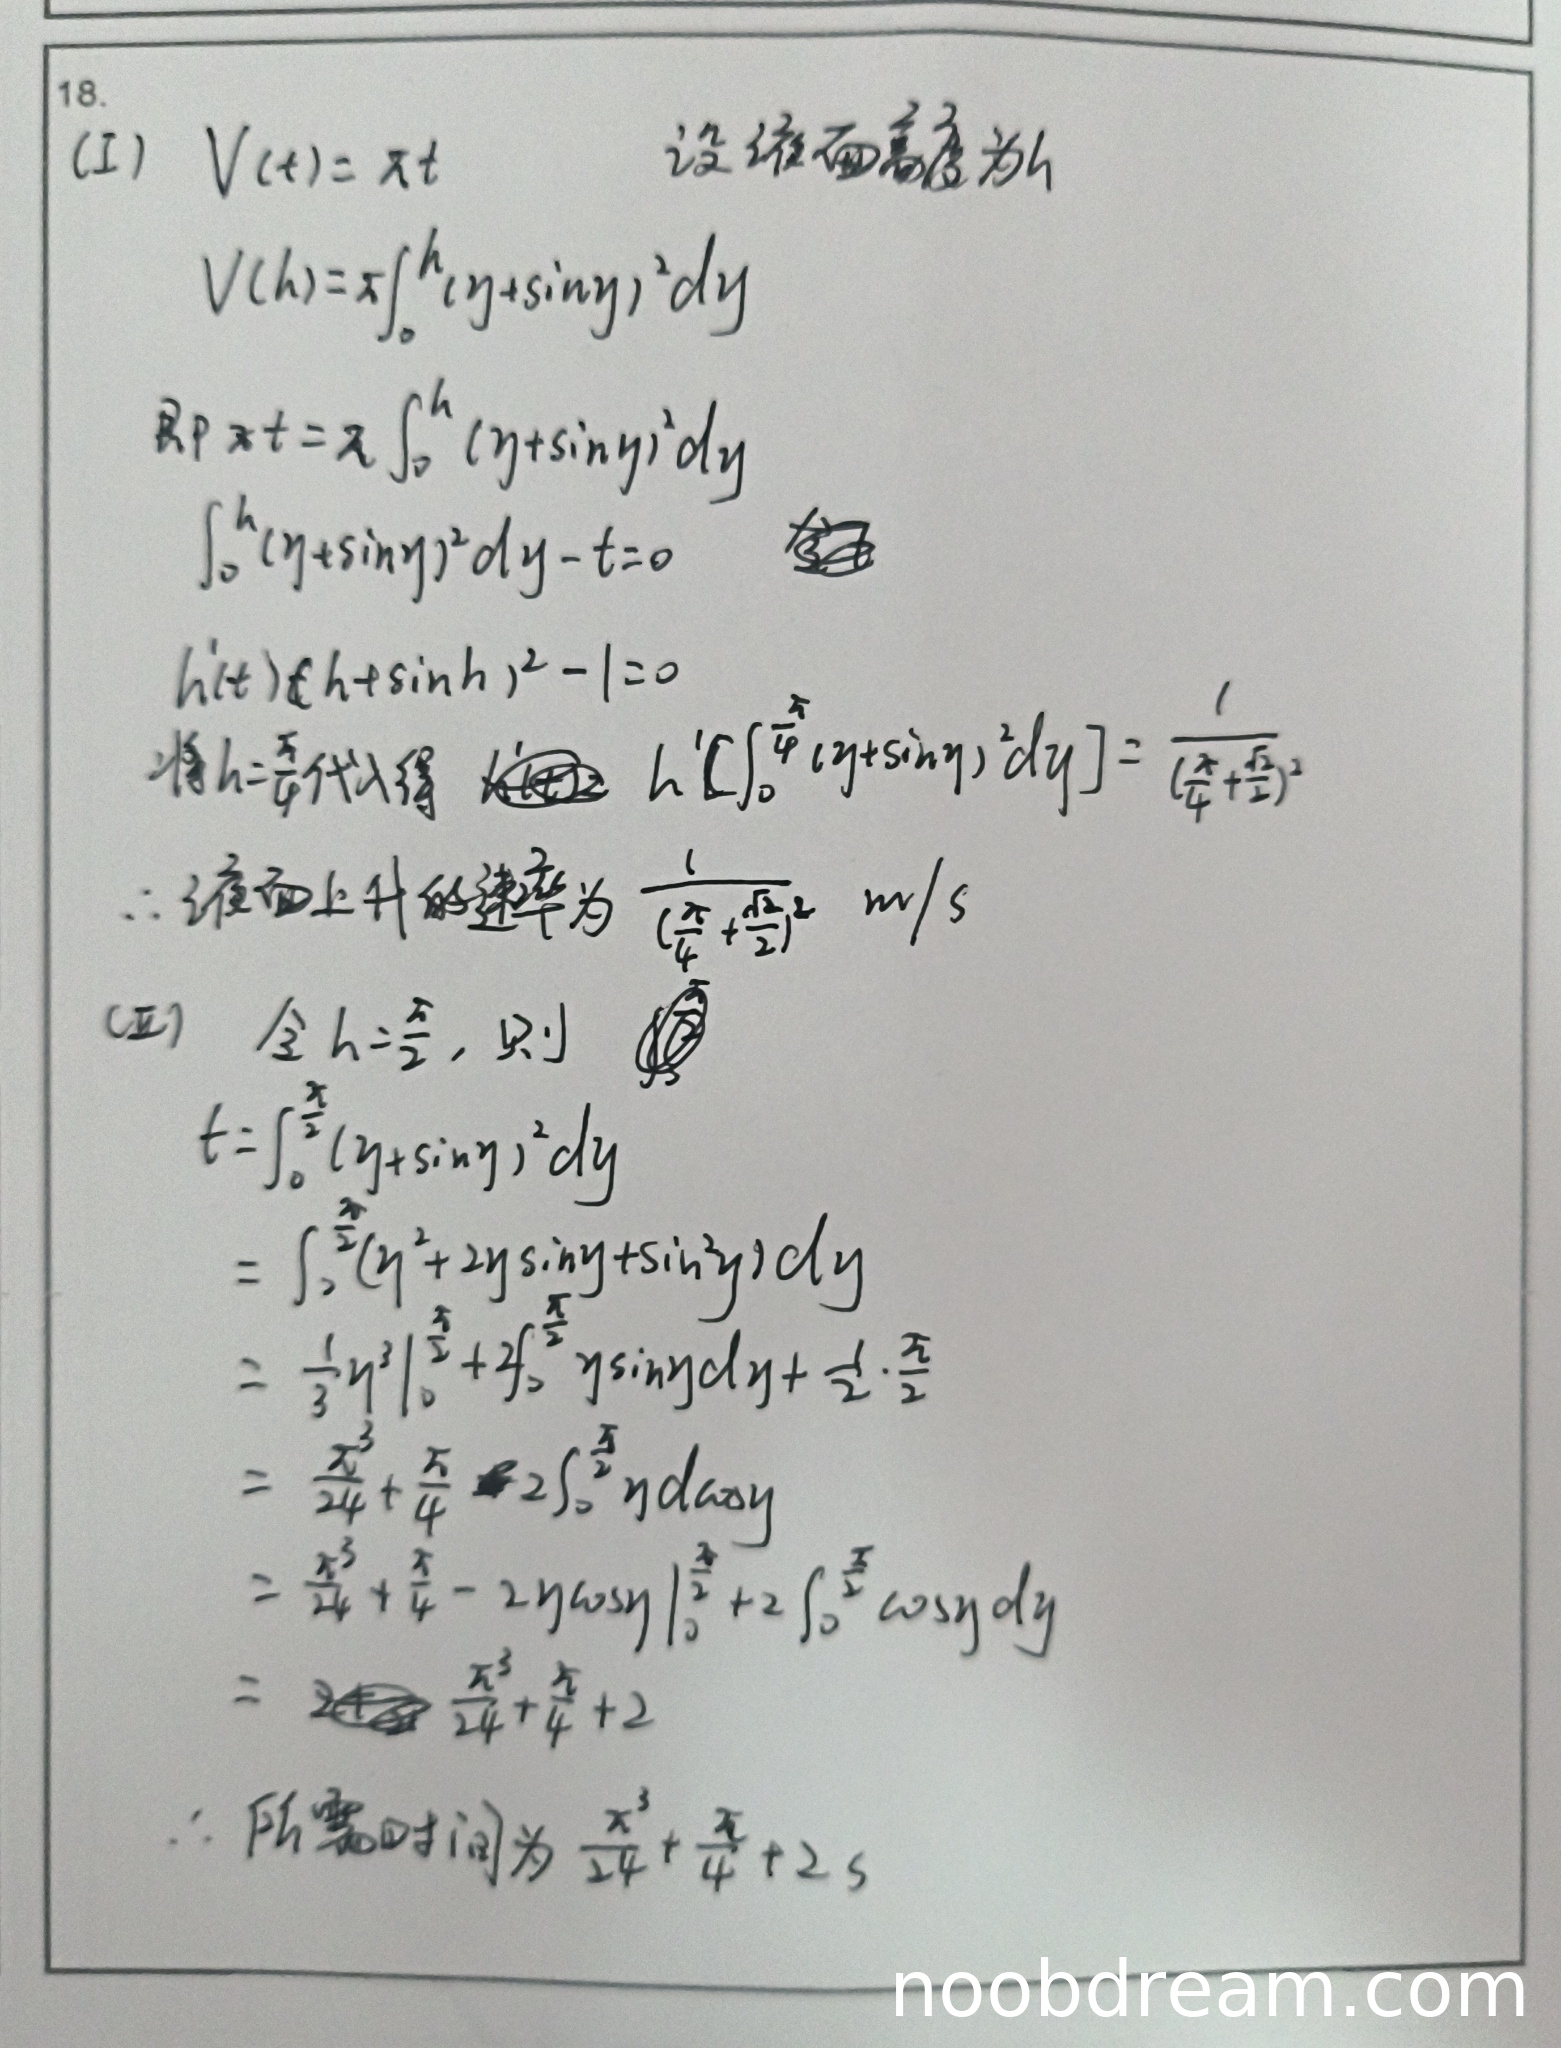 18.
(I) V(t)=πt 设液面高度为h
V(h)=π∫₀^h(y+siny)²dy
即πt=π∫₀^h(y+siny)²dy
∫₀^h(y+siny)²dy-t=0
h'(t)(h+sinh)²-1=0
将h=π/4代入得 h'[∫₀^(π/4)(y+siny)²dy]=1/(π/4+√2/2)²
∴液面上升的速率为 1/(π/4+√2/2)² m/s
(II) 令h=π/2,则
t=∫₀^(π/2)(y+siny)²dy
=∫₀^(π/2)(y²+2ysiny+sin²y)dy
=1/3y³|₀^(π/2)+2∫₀^(π/2)ysinydy+1/2·π/2
=π³/24+π/4-2∫₀^(π/2)ydcosy
=π³/24+π/4-2ycosy|₀^(π/2)+2∫₀^(π/2)cosydy
=π³/24+π/4+2
∴所需时间为π³/24+π/4+2 s
noobdream.com